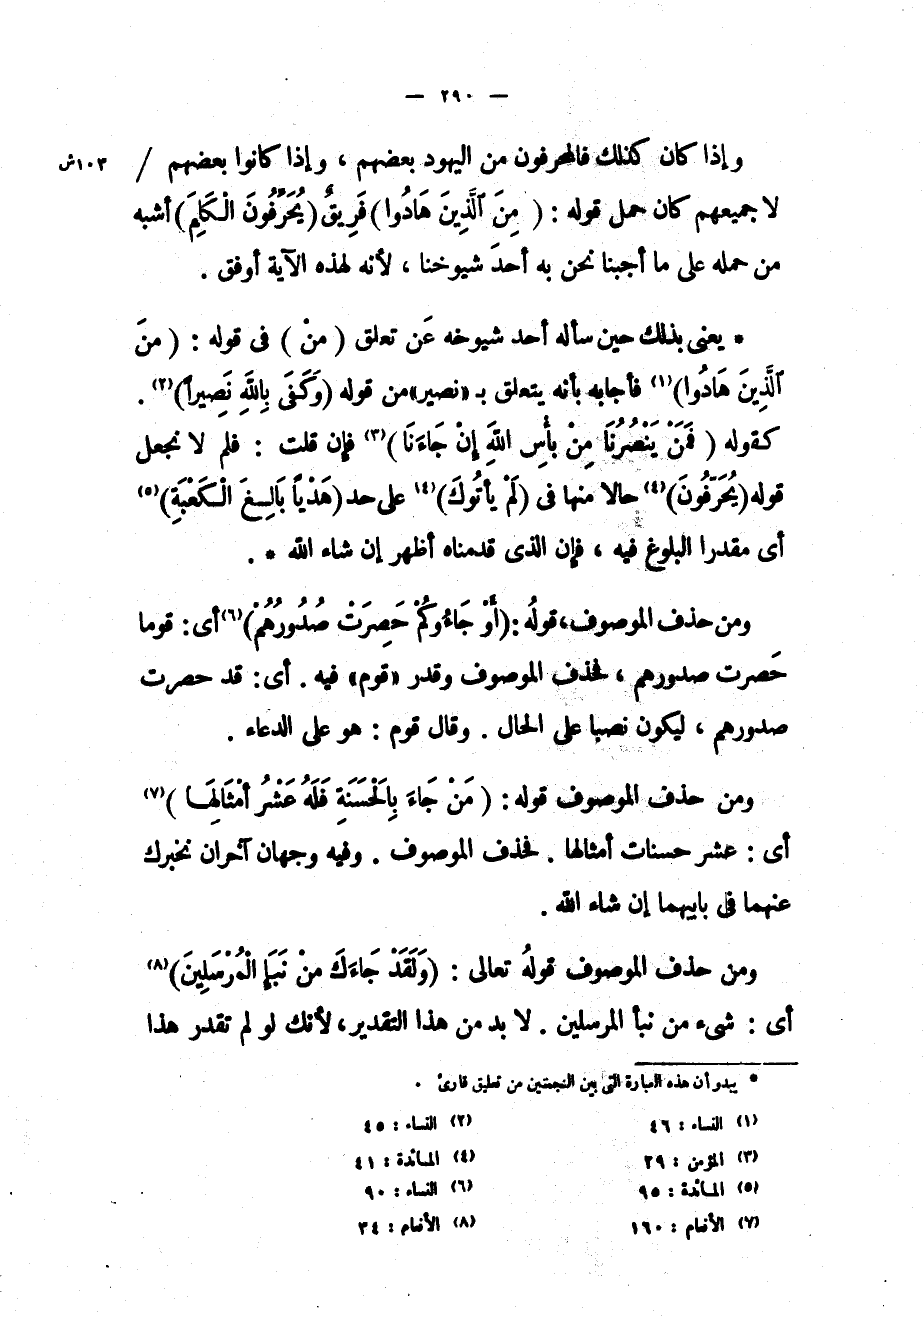 — ٢٩٠ —
وإذا كان كذلك فالمحرفون من اليهود بعضهم ، وإذا كانوا بعضهم / ١٠٣ش
لا جميعهم كان حمل قوله : ( مِنَ ٱلَّذِينَ هَادُوا ) فَرِيقٌ ( يُحَرِّفُونَ الْكَلِمَ ) أشبه
من حمله على ما أجبنا نحن به أحدَ شيوخنا ، لأنه لهذه الآية أوفق .
* يعنى بذلك حين سأله أحد شيوخه عَن تعلق ( منْ ) فى قوله : ( منَ
ٱلَّذِينَ هَادُوا )(١) فأجابه بأنه يتعلق بـ «نصير» من قوله ( وَكَفَى بِاللهِ نَصِيراً )(٢) .
كقوله ( فَمَنْ يَنْصُرُنَا مِنْ بأْسِ اللهِ إنْ جَاءَنَا )(٣) فإن قلت : فلم لا نجعل
قوله ( يُحَرِّفُونَ )(٤) حالا منها فى ( لَمْ يأْتُوكَ )(٤) على حد ( هَدْياً بَالِغَ الْكَعْبَةِ )(٥)
أى مقدرا البلوغ فيه ، فإن الذى قدمناه أظهر إن شاء الله * .
ومن حذف الموصوف، قولُه : ( أَوْ جَاءُوكُمْ حَصِرَتْ صُدُورُهُمْ )(٦) أى : قوما
حَصرت صدورهم ، فحذف الموصوف وقدر «قوم» فيه . أى : قد حصرت
صدورهم ، ليكون نصبا على الحال . وقال قوم : هو على الدعاء .
ومن حذف الموصوف قوله : ( مَنْ جَاءَ بِالْحَسَنَةِ فَلَهُ عَشْرُ أمْثَالِهَا )(٧)
أى : عشر حسنات أمثالها . فحذف الموصوف . وفيه وجهان آخران نخبرك
عنهما فى بابيهما إن شاء الله .
ومن حذف الموصوف قولُه تعالى : ( وَلَقَدْ جَاءَكَ منْ نَبَإِ الْمُرْسَلِينَ )(٨)
أى : شىء من نبأ المرسلين . لا بد من هذا التقدير، لأنك لو لم تقدر هذا
* يبدو أن هذه العبارة التى بين النجمتين من تعليق قارئ .
(١) النساء : ٤٦ (٢) النساء : ٤٥
(٣) المؤمن : ٢٩ (٤) المائدة : ٤١
(٥) المائدة : ٩٥ (٦) النساء : ٩٠
(٧) الأنعام : ١٦٠ (٨) الأنعام : ٣٤